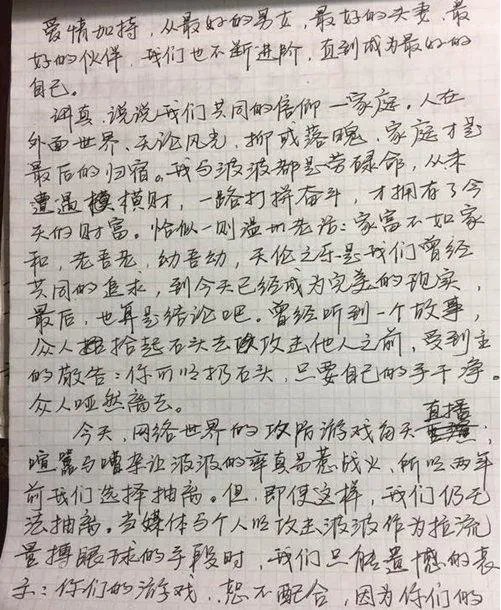 爱情加持，从最好的男女，最好的夫妻，最
好的伙伴，我们也不断进阶，直到成为最好的
自己。
讲真，说说我们共同的信仰—家庭。人在
外面世界、无论风光，抑或落魄，家庭才是
最后的归宿。我与波波都是劳碌命，从未
遭遇横财，一路打拼奋斗，才拥有了今
天的财富。恰似一则温州老话：家富不如家
和，老吾老，幼吾幼，天伦之乐是我们曾经
共同的追求，到今天已经成为完美的现实，
最后，也算是结论吧。曾经听到一个故事，
众人捡拾起石头去攻击他人之前，受到主
的敬告：你可以扔石头，只要自己的手干净。
众人哑然离去。
今天，网络世界的攻防游戏每天直播
喧嚣与嘈杂让波波的率真易惹战火，所以两年
前我们选择抽离。但，即便这样，我们仍无
法抽离。当媒体与个人以攻击波波作为拉流
量搏眼球的手段时，我们只能遗憾的表
示：你们的游戏，恕不配合，因为你们的